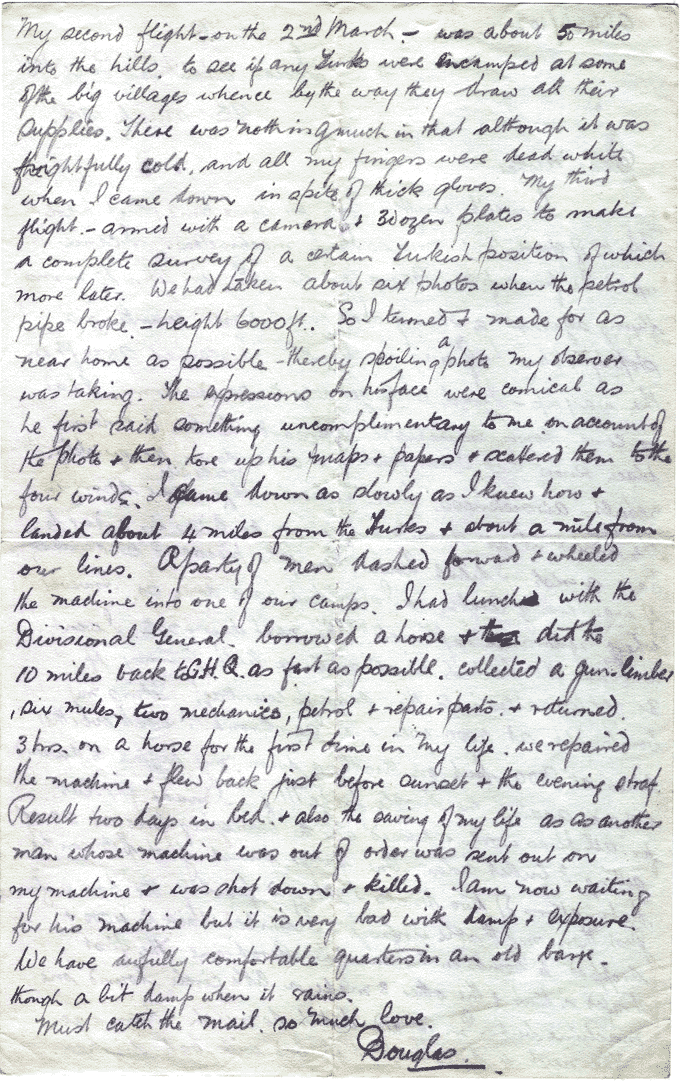 My second flight - on the 2nd March - was about 50 miles
into the hills, to see if any Turks were encamped at some
of the big villages whence by the way they draw all their
supplies. There was nothing much in that although it was
frightfully cold, and all my fingers were dead white
when I came down in spite of thick gloves. My third
flight. - armed with a camera & 3 dozen plates to make
a complete survey of a certain Turkish position of which
more later. We had taken about six photos when the petrol
pipe broke - height 6000 ft. So I turned & made for as
near home as possible - thereby spoiling a photo my observer
was taking. The expressions on his face were comical as
he first said something uncomplimentary to me on account of
the photo & then tore up his maps & papers & scattered them to the
four winds. I came down as slowly as I knew how &
landed about 4 miles from the Turks & about a mile from
our lines. A party of men dashed forward & wheeled
the machine into one of our camps. I had lunch with the
Divisional General. borrowed a horse & did the
10 miles back to G.H.Q. as fast as possible. collected a gun-limber
, six mules, two mechanics, petrol & repair parts. & returned.
3 hrs. on a horse for the first time in my life. we repaired
the machine & flew back just before sunset & the evening straf.
Result two days in bed. & also the saving of my life as as another
man whose machine was out of order was sent out on
my machine & was shot down & killed. I am now waiting
for his machine but it is very bad with damp & exposure.
We have awfully comfortable quarters in an old barge.
though a bit damp when it rains.
Must catch the mail. so much love.
Douglas.